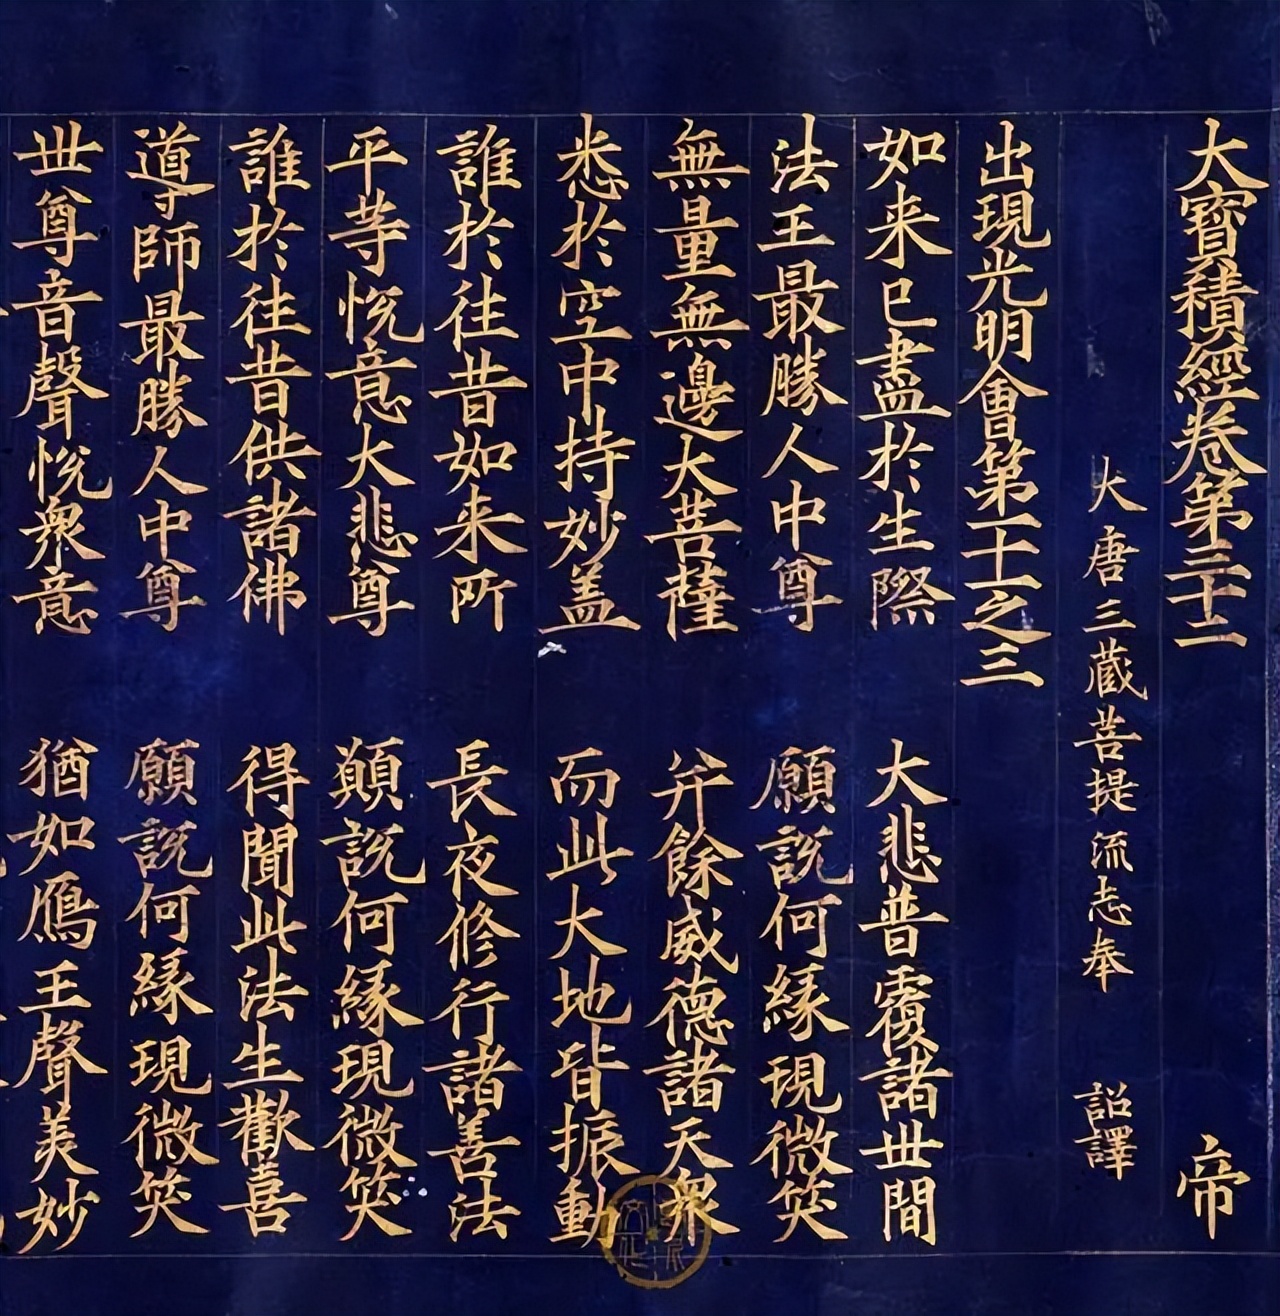 大寶積經卷第三十二　帝
大唐三藏菩提流志奉　詔譯
出現光明會第十一之三
如来已盡於生際　大悲普覆諸世間
法王最勝人中尊　願說何緣現微笑
無量無邊大菩薩　并餘威德諸天衆
悉於空中持妙盖　而此大地皆振動
誰於往昔如来所　長夜修行諸善法
平等悅意大悲尊　顛說何緣現微笑
誰於往昔供諸佛　得聞此法生歡喜
導師最勝人中尊　願說何緣現微笑
世尊音聲悅衆意　猶如鴈王聲美妙